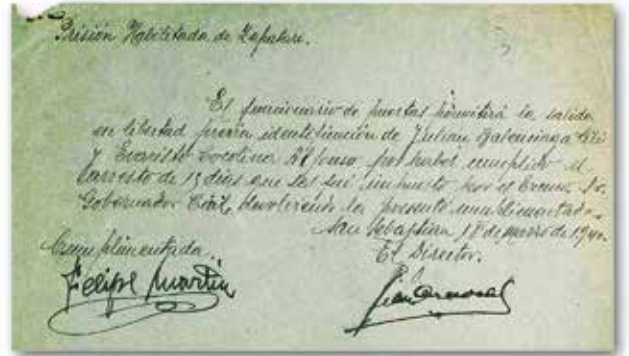 Prisión Habilitada de Zapatari.
El funcionario de puertas permitirá la salida
en libertad previa identificación de Julian Balenciaga
y Evaristo Alfonso por haber cumplido el
arresto de 15 dias que les fué impuesto por el Excmo. Sr.
Gobernador Civil, devolviendo la presente cumplimentada.
San Sebastian 18 de de 1940.
Cumplimentada. El Director.
Felipe Martin